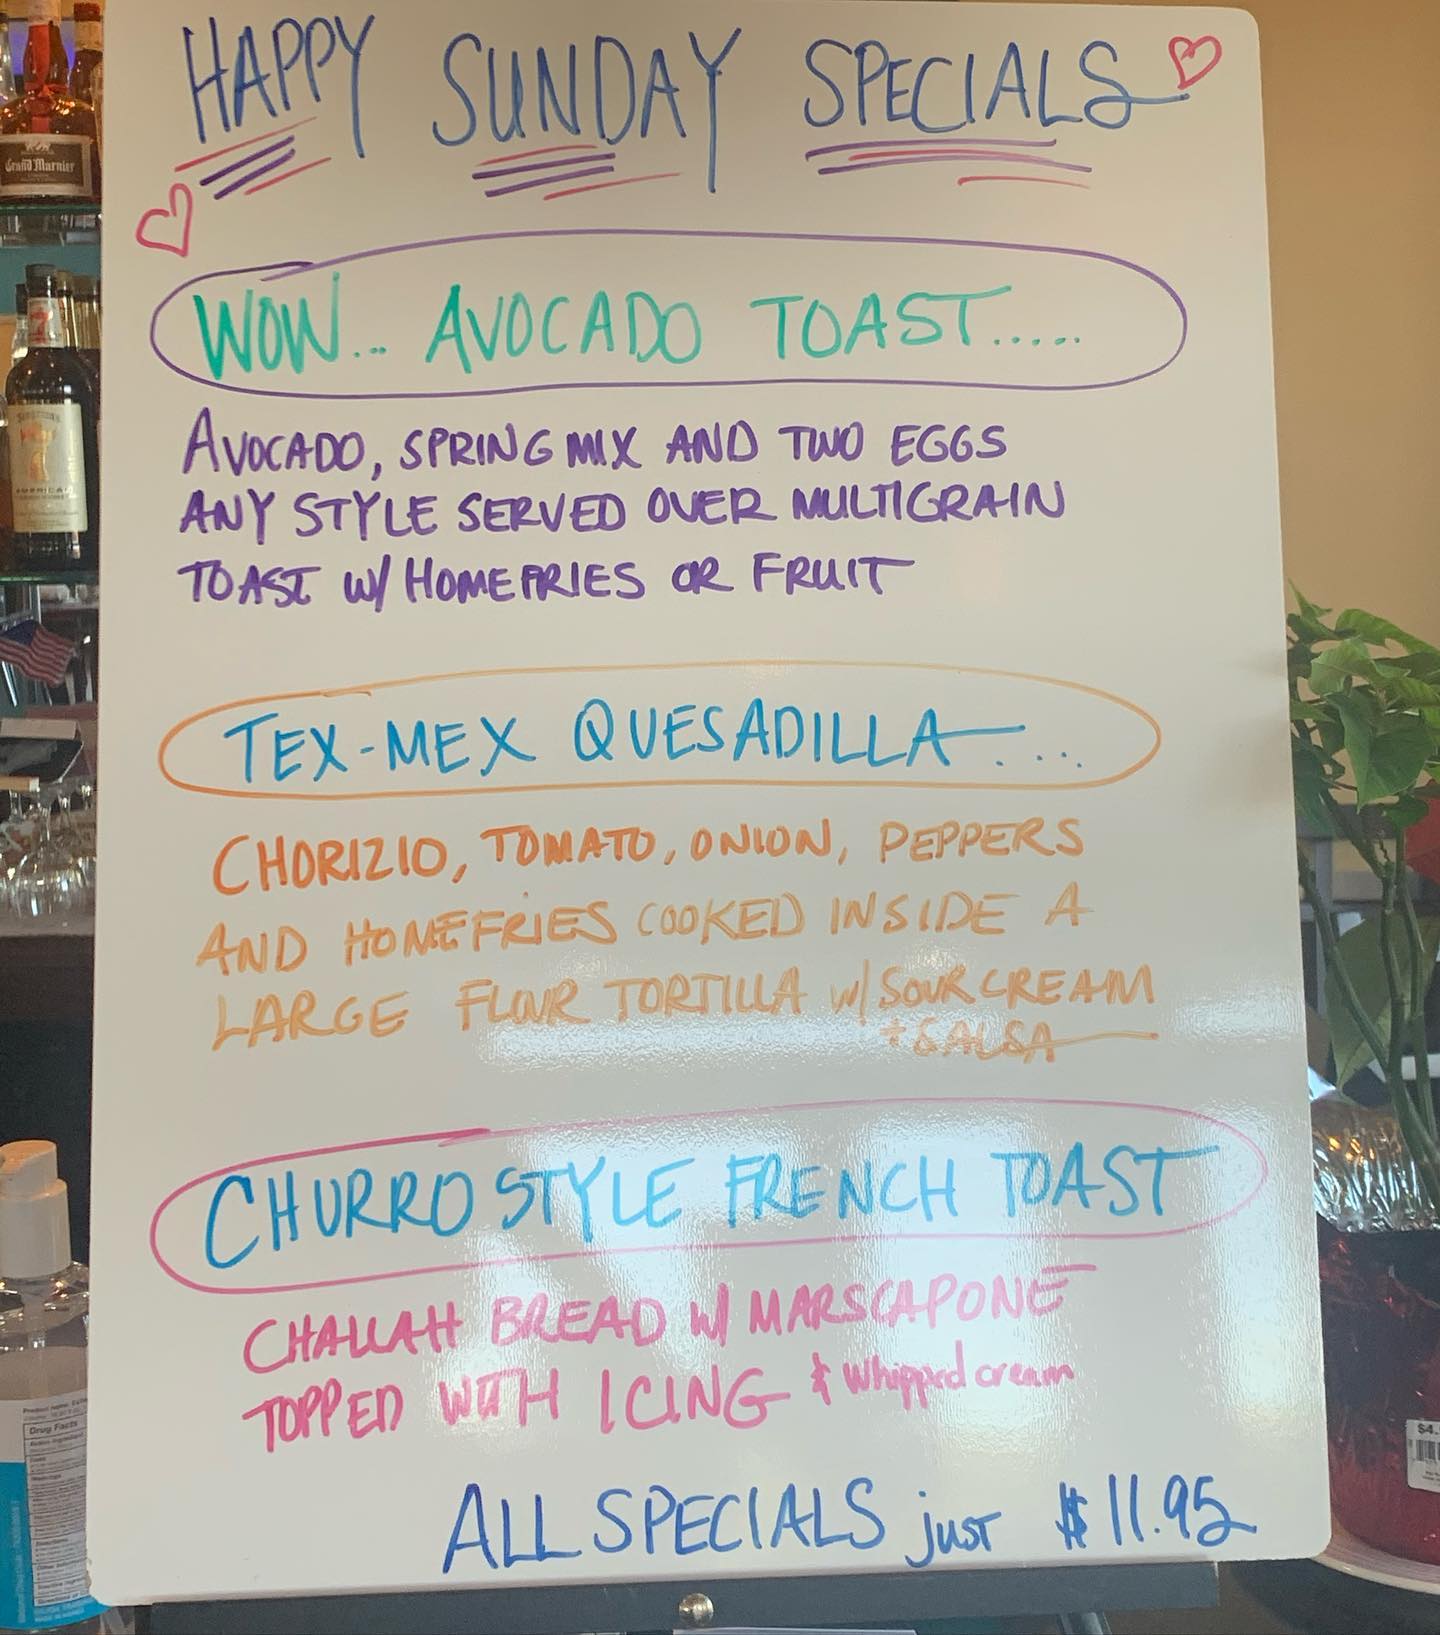 HAPPY SUNDAY SPECIALS
WOW... AVOCADO TOAST.....
AVOCADO, SPRING MIX AND TWO EGGS
ANY STYLE SERVED OVER MULTIGRAIN
TOAST W/ HOMEFRIES OR FRUIT
TEX-MEX QUESADILLA....
CHORIZIO, TOMATO, ONION, PEPPERS
AND HOMEFRIES COOKED INSIDE A
LARGE FLOUR TORTILLA W/ SOUR CREAM
+ SALSA
CHURRO STYLE FRENCH TOAST
CHALLAH BREAD W/ MARSCAPONE
TOPPED WITH ICING & whipped cream
ALL SPECIALS just $11.95
Grand Marnier
7
AMERICAN
Drug Facts
$4.